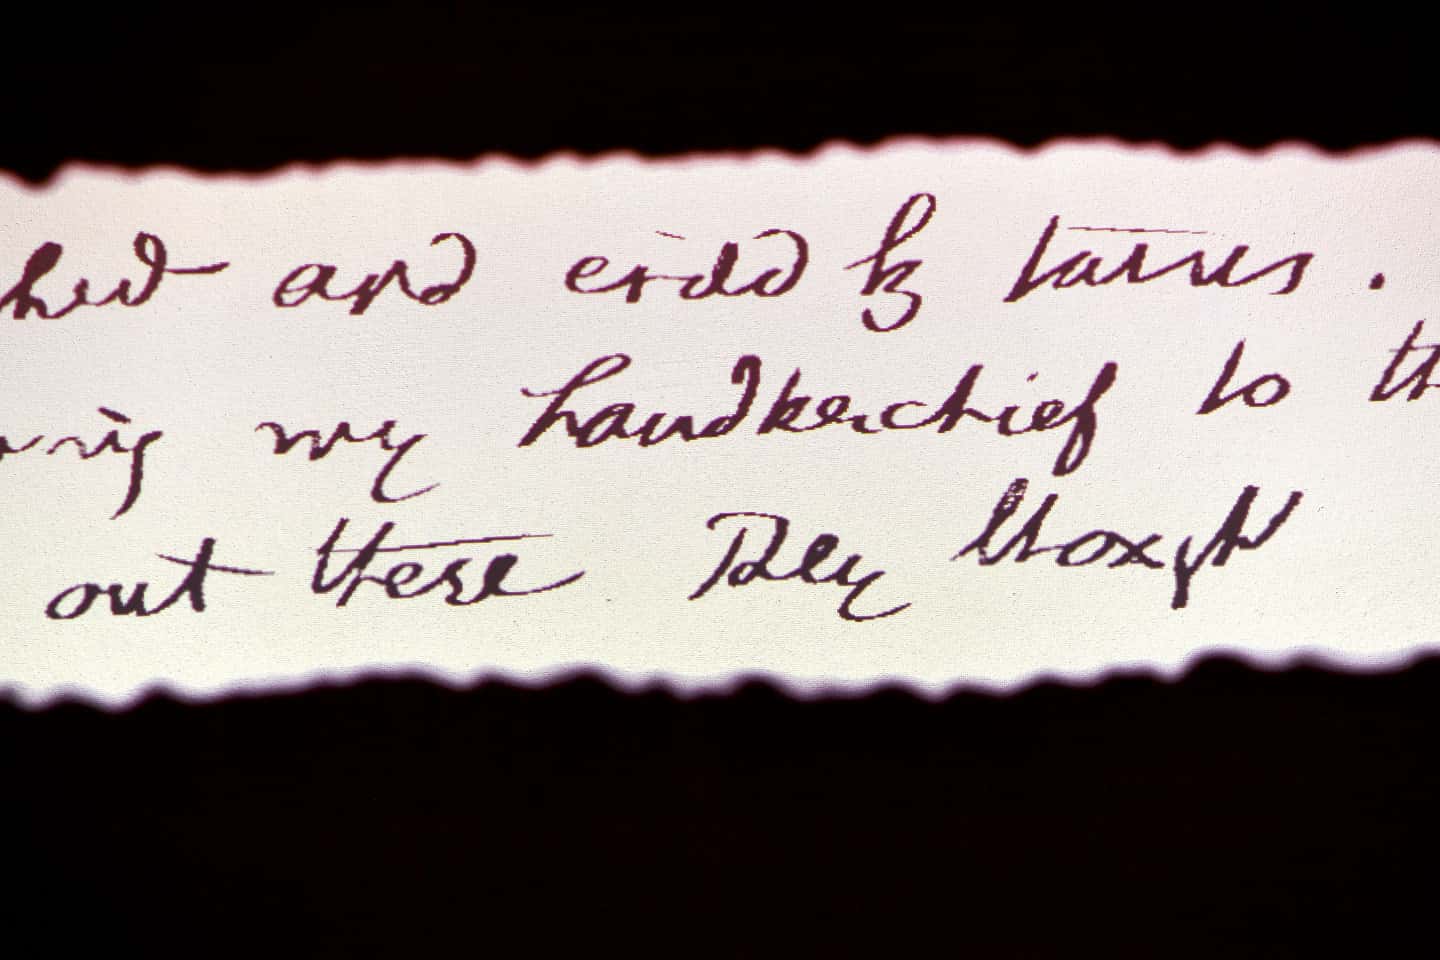 hed and cried by turns .
ving my handkerchief to th
out there They thought